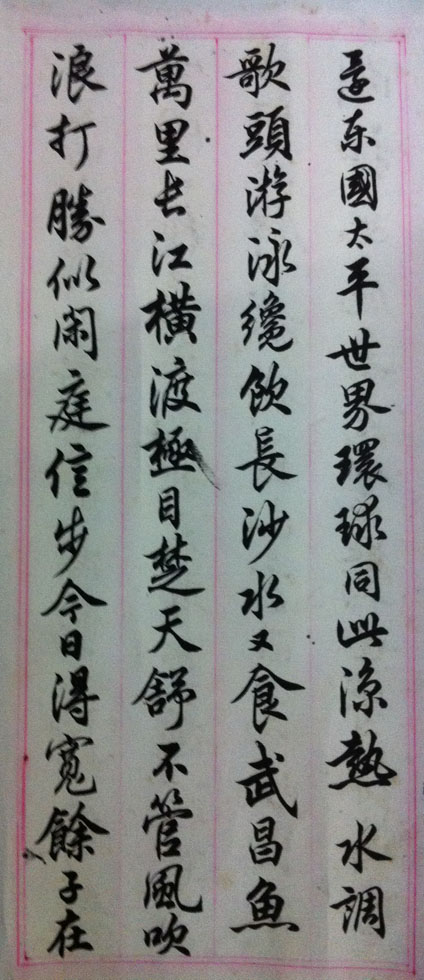 還东國太平世界環球同此涼熱 水調
歌頭游泳纔飲長沙水又食武昌魚
萬里长江横渡極目楚天舒不管風吹
浪打勝似閑庭信步今日得寬餘子在